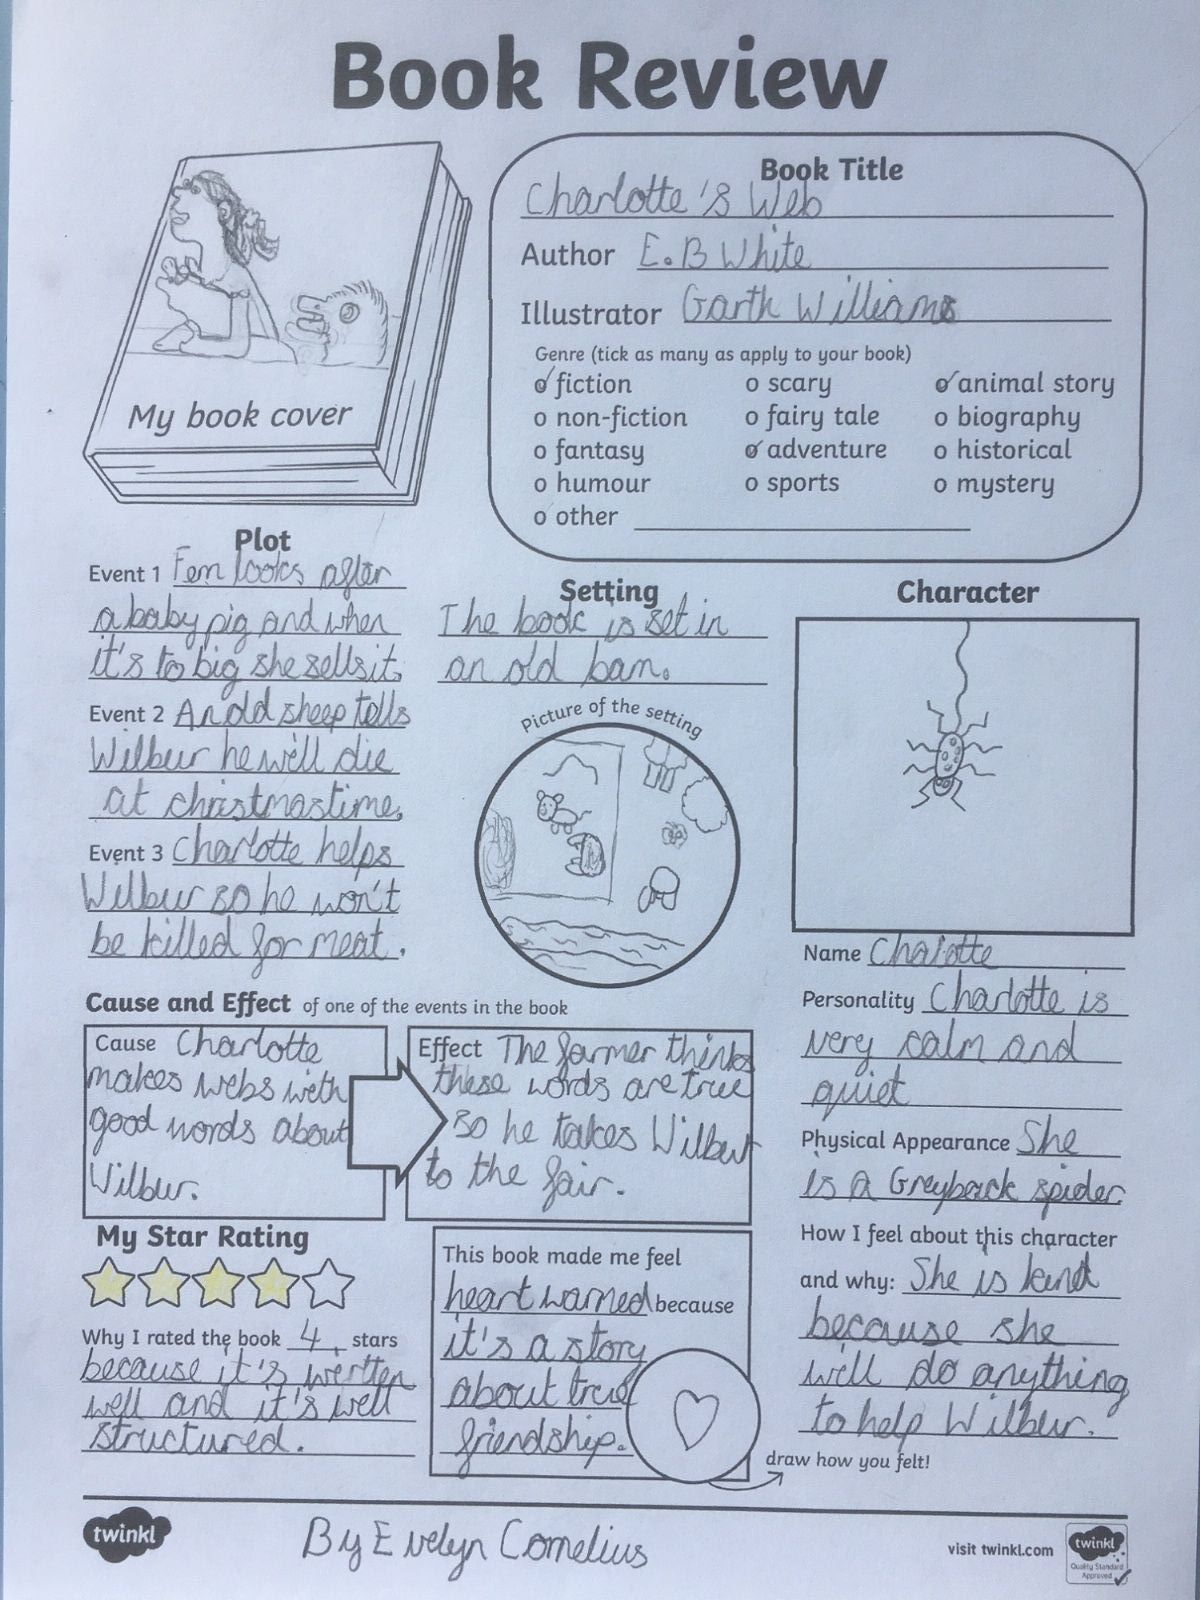 Book Review
My book cover
Book Title
Charlotte's Web
Author E.B White
Illustrator Garth Williams
Genre (tick as many as apply to your book)
fiction
scary
animal story
non-fiction
fairy tale
biography
fantasy
adventure
historical
humour
sports
mystery
other
Plot
Event 1 Fern looks after
a baby pig and when
it's to big she sells it.
Event 2 An old sheep tells
Wilbur he will die
at christmastime.
Event 3 Charlotte helps
Wilbur so he won't
be killed for meat.
Setting
The book is set in
an old barn.
Picture of the setting
Character
Name Charlotte
Personality Charlotte is
very calm and
quiet
Physical Appearance She
is a Greyback spider
How I feel about this character
and why: She is kind
because she
will do anything
to help Wilbur.
Cause and Effect of one of the events in the book
Cause Charlotte
makes webs with
good words about
Wilbur.
Effect The farmer thinks
these words are true
so he takes Wilbur
to the fair.
My Star Rating
Why I rated the book 4 stars
because it's written
well and it's well
structured.
This book made me feel
heart warmed because
it's a story
about true
friendship.
draw how you felt!
twinkl
By Evelyn Cornelius
visit twinkl.com
twinkl
Quality Standard
Approved